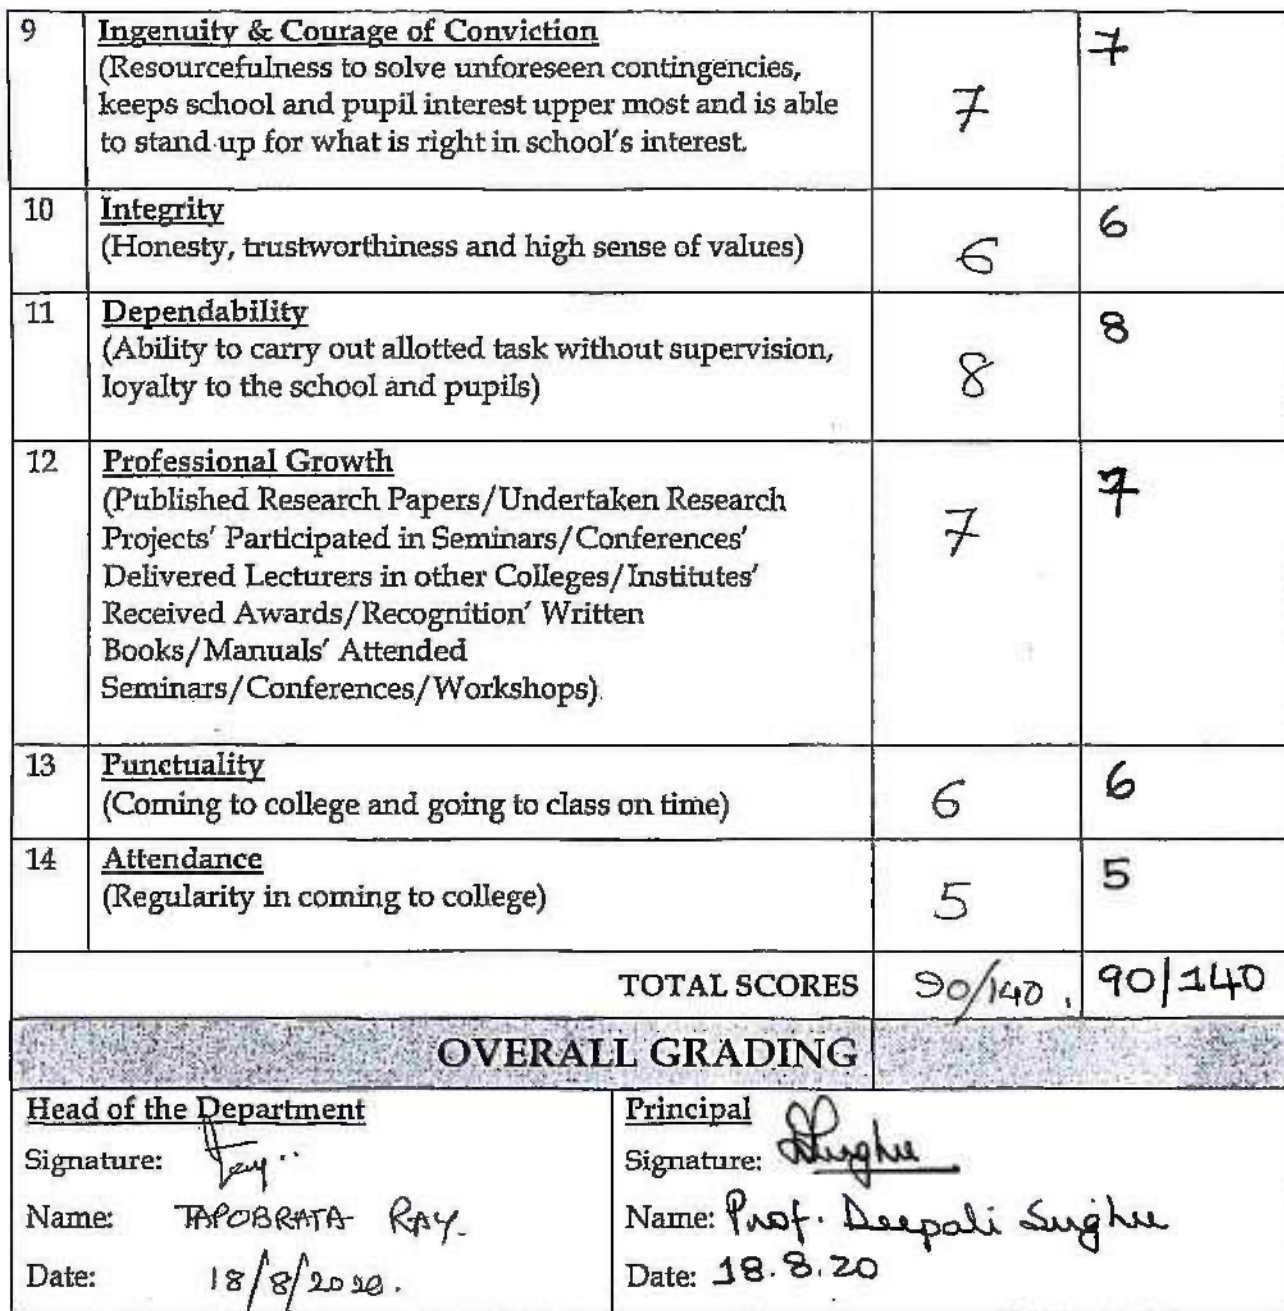 9 Ingenuity & Courage of Conviction 7 7
(Resourcefulness to solve unforeseen contingencies,
keeps school and pupil interest upper most and is able
to stand up for what is right in school's interest.
10 Integrity 6 6
(Honesty, trustworthiness and high sense of values)
11 Dependability 8 8
(Ability to carry out allotted task without supervision,
loyalty to the school and pupils)
12 Professional Growth 7 7
(Published Research Papers/Undertaken Research
Projects' Participated in Seminars/Conferences'
Delivered Lecturers in other Colleges/Institutes'
Received Awards/Recognition' Written
Books/Manuals' Attended
Seminars/Conferences/Workshops)
13 Punctuality 6 6
(Coming to college and going to class on time)
14 Attendance 5 5
(Regularity in coming to college)
TOTAL SCORES 90/140. 90/140
OVERALL GRADING
Head of the Department
Signature:
Name: TAPOBRATA RAY.
Date: 18/8/2020.
Principal
Signature:
Name: Prof. Deepali
Date: 18.8.20